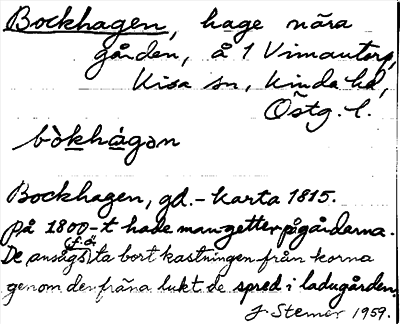 Bockhagen, hage nära
gården, å 1 Vimantorp,
Kisa sn, Kinda hd,
Östg. l.
bòkhàgən
Bockhagen, gd. - karta 1815.
På 1800-t hade man getter på gårdarna.
De ansågs (f.ö.) ta bort kastningen från korna
genom den fräna lukt de spred i ladugården.
J Stemar 1959.